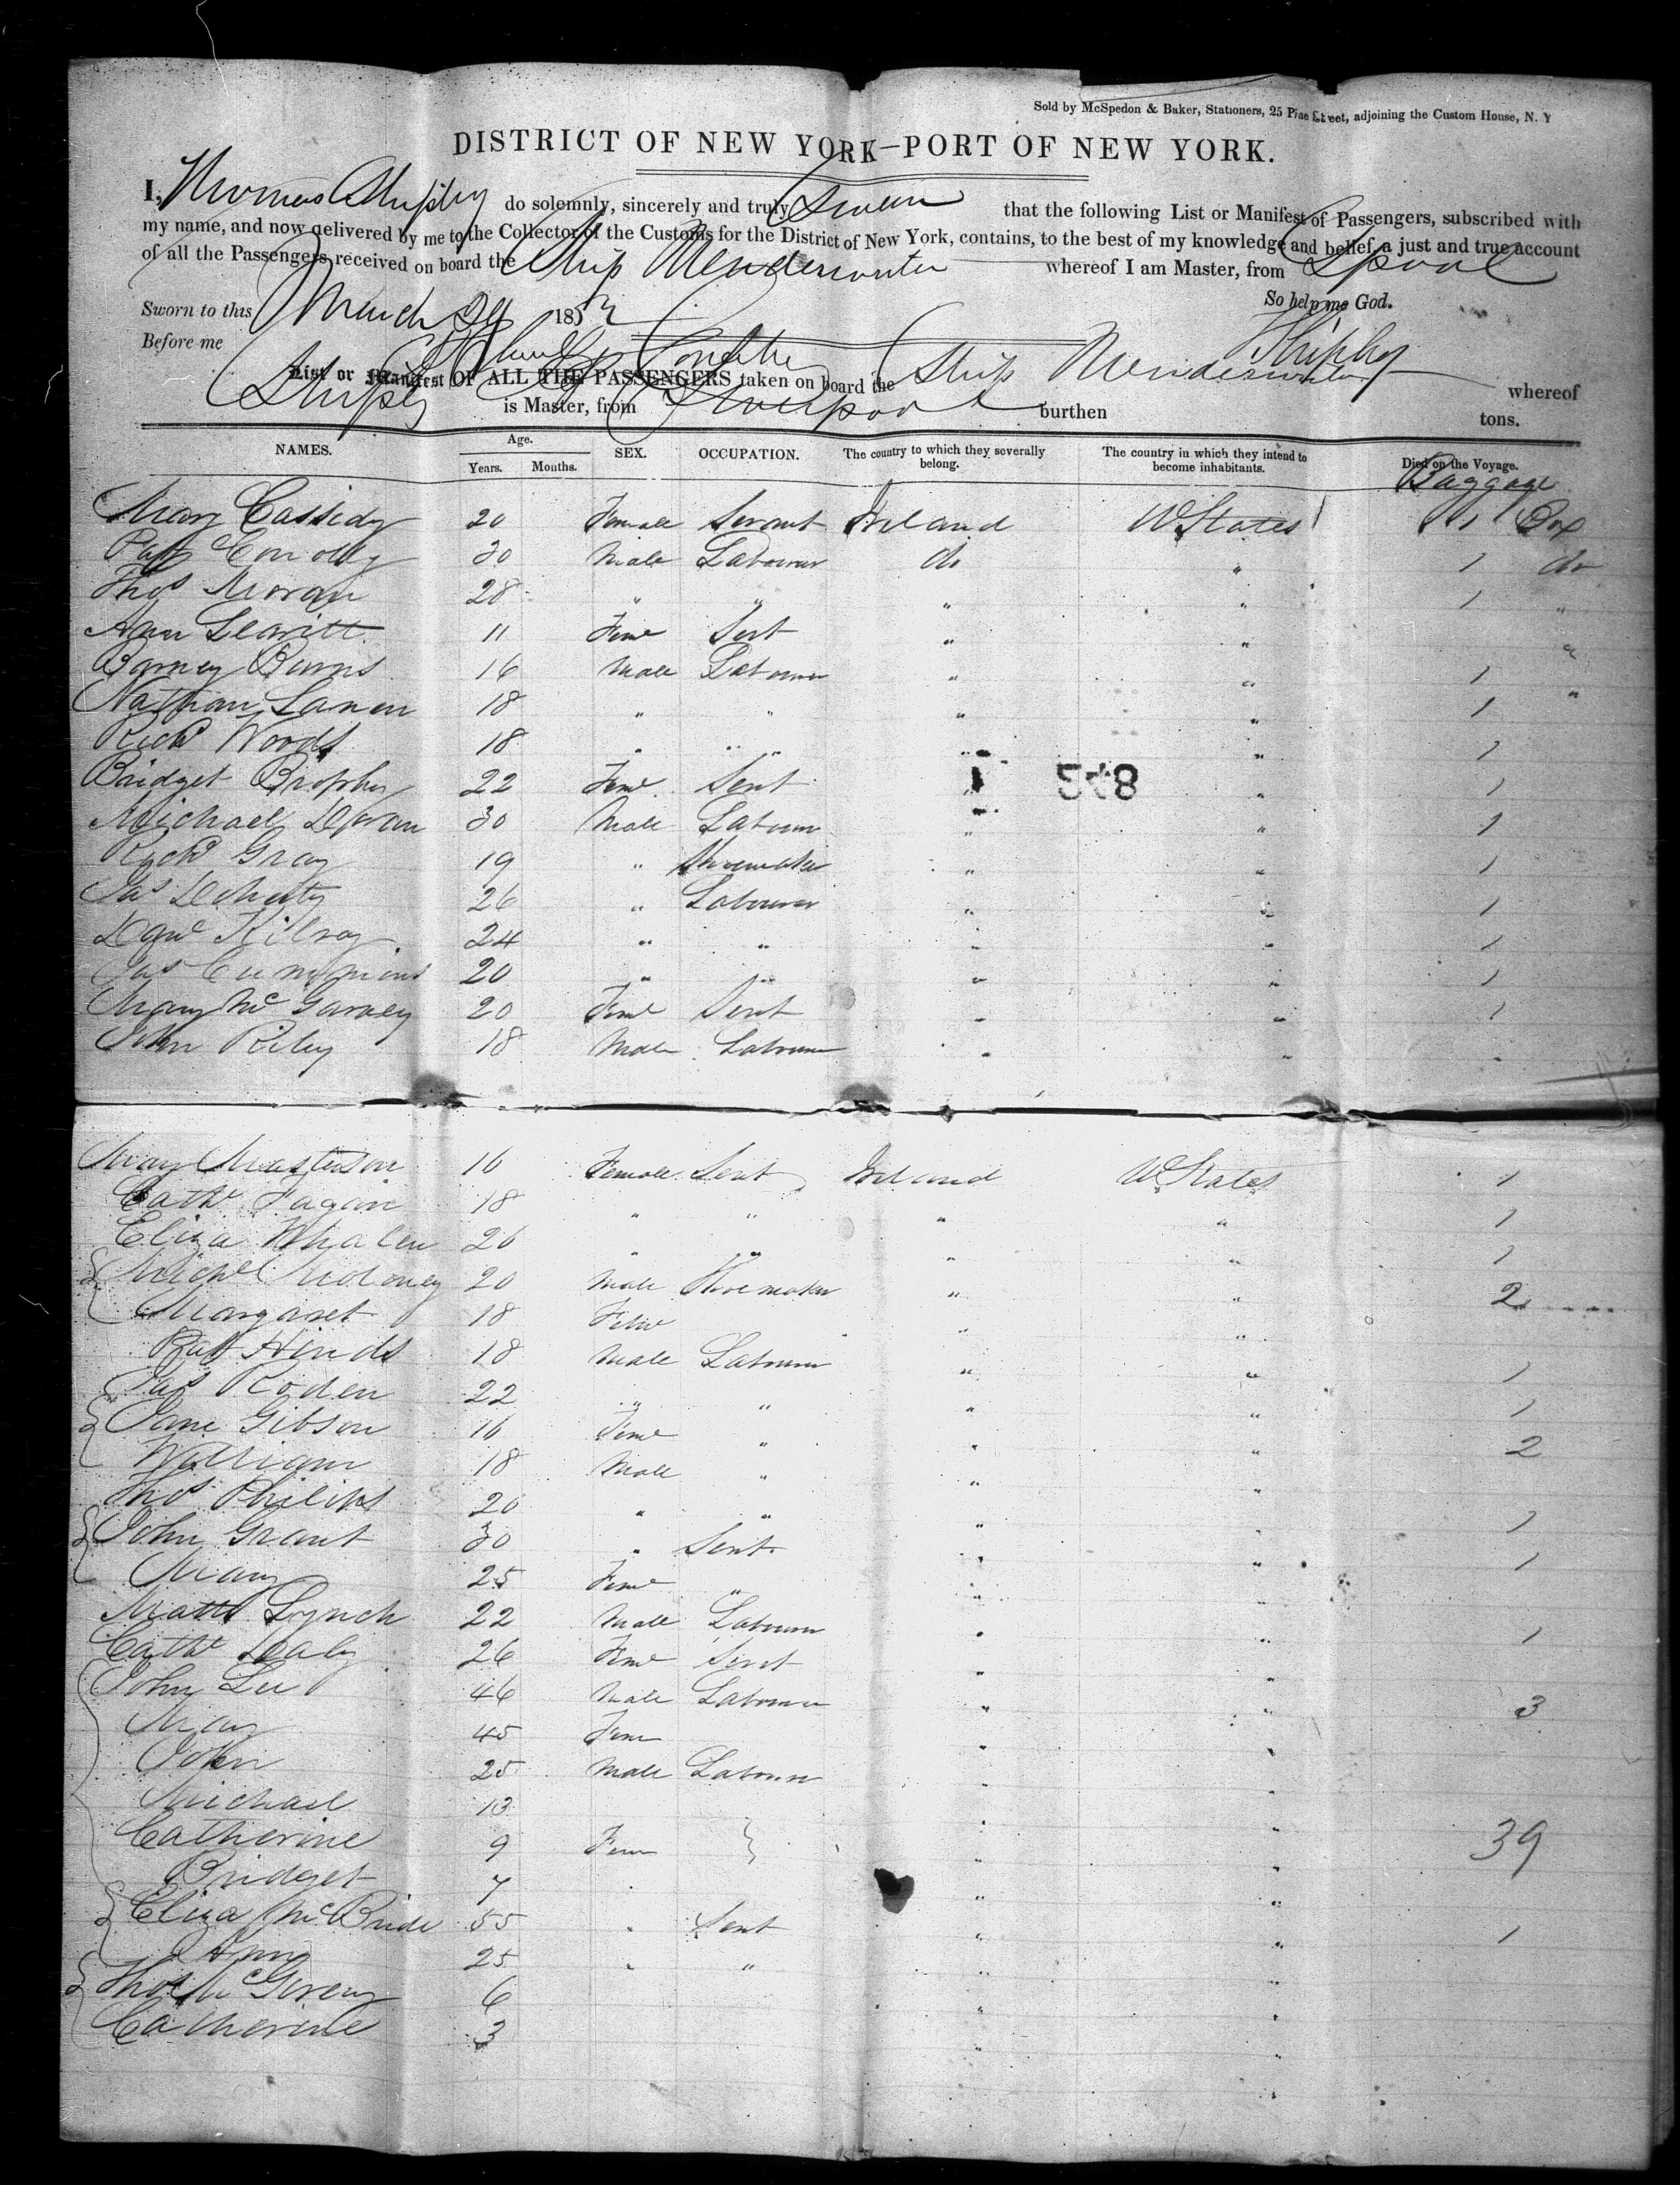 Sold by McSpedon & Baker, Stationers, 25 Pine Street, adjoining the Custom House, N. Y
DISTRICT OF NEW YORK—PORT OF NEW YORK.
I, Thomas Shipley do solemnly, sincerely and truly Swear that the following List or Manifest of Passengers, subscribed with
my name, and now delivered by me to the Collector of the Customs for the District of New York, contains, to the best of my knowledge and belief, a just and true account
of all the Passengers received on board the Ship whereof I am Master, from Lpool
Sworn to this March 185
So help me God.
Before me
Shipley
List or Manifest OF ALL THE PASSENGERS taken on board the Ship whereof
Shipley is Master, from Liverpool burthen tons.
NAMES. Age. Years. Months. SEX. OCCUPATION. The country to which they severally belong. The country in which they intend to become inhabitants. Died on the Voyage.
Baggage
Mary Cassidy 20 Female Servant Ireland U States 1 Box
Patk Connolly 30 Male Labourer do " 1 do
Thos Moran 28 " " " " 1 "
Ann Leavitt 11 Fme Sert " " "
Barney Burns 16 Male Labourer " " 1 "
Nathan 18 " " " " 1
Richd Woods 18 " " " " 1
Bridget Brophy 22 Fme Sert " " 1
Michael Doran 30 Male Labourer " " 1
Richd Gray 19 " Shoemaker " " 1
Jas Doherty 26 " Labourer " " 1
Kilroy 24 " " " " 1
Jas Cummins 20 " " " " 1
Mary McGarvey 20 Fme Sert " " 1
John Riley 18 Male Labourer " "
548
Mary Masterson 16 Female Sert Ireland U States 1
Cathe Fagan 18 " " " " 1
Eliza Whalen 20 " " " " 1
Michl Moloney 20 Male Shoemaker " " 2
Margaret 18 Fme " "
Pat Hinds 18 Male Labourer " " 1
Jas Roden 22 " " " " 1
Jane Gibson 16 Fme " " " 2
William 18 Male " " "
Thos Philips 20 " " " " 1
John Grant 30 " Sert " " 1
Mary 25 Fme " " "
Matt Lynch 22 Male Labourer " " 1
Cathe Daly 26 Fme Sert " "
John Lee 46 Male Labourer " " 3
Mary 45 Fme " "
John 25 Male Labourer " "
Michael 13 " "
Catherine 9 Fme " " 39
Bridget 7 " "
Eliza McBride 55 " Sert " " 1
Ann 25 " " " "
Thos 6 " "
Catherine 3 " "